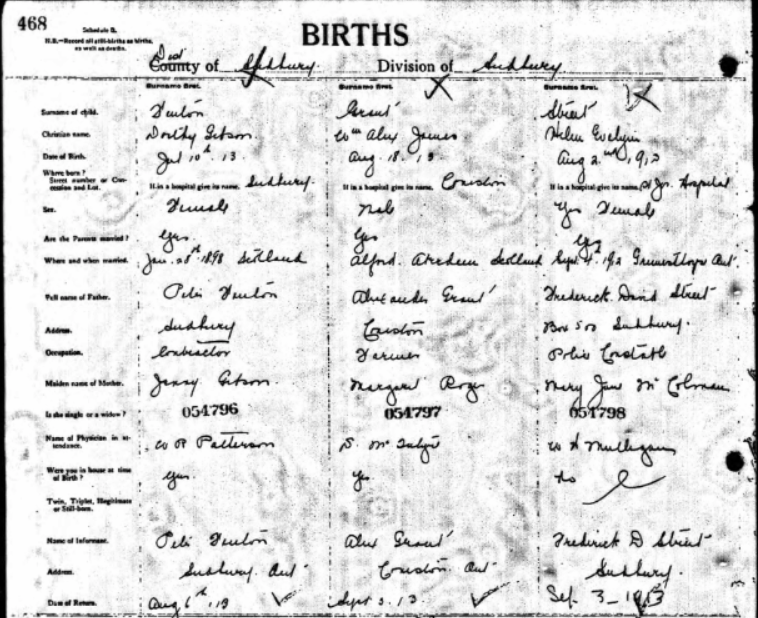 468
Schedule B.
N.B.—Record all still-births as births, as well as deaths.
BIRTHS
Dist
County of Sudbury Division of Sudbury
Surname first. Surname first. Surname first.
Surname of child. Fenton Grant Street
Christian name. Dorothy Gibson Wm Alex James Helen Evelyn
Date of Birth. 10th 13 Aug. 18. 13 Aug 2nd, 1913
Where born?
Street number or Concession and Lot. If in a hospital give its name. Sudbury. If in a hospital give its name. Coniston If in a hospital give its name. Hospital
Sex. Female Male Yes Female
Are the Parents married? Yes Yes Yes
Where and when married. Jan. 28th 1898 Scotland Alford. Aberdeen Scotland Sept. 4th Ont.
Full name of Father. Peter Fenton Alexander Grant Frederick David Street
Address. Sudbury Coniston Box 500 Sudbury.
Occupation. Contractor Farmer Police Constable
Maiden name of Mother. Jenny Gibson Margaret Roger Mary Jane McColman
Is she single or a widow? 054796 054797 054798
Name of Physician in attendance. W R Patterson S. W H Mulligan
Were you in house at time of Birth? Yes Yes No
Twin, Triplet, Illegitimate or Still-born.
Name of Informant. Peter Fenton Alex Grant Frederick D Street
Address. Sudbury. Ont Coniston. Ont Sudbury.
Date of Return. Aug 6th. 13 Sept 3. 13 Sep. 3 - 1913